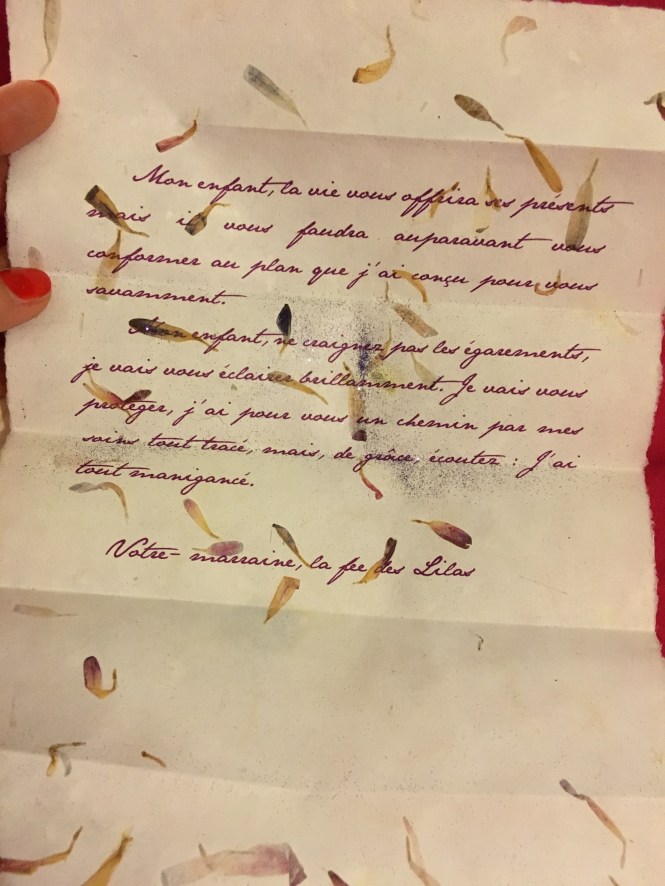 Mon enfant, la vie vous offrira ses présents
mais il vous faudra auparavant vous
conformer au plan que j'ai conçu pour vous
savamment.
Mon enfant, ne craignez pas les égarements,
je vais vous éclairer brillamment. Je vais vous
protéger, j'ai pour vous un chemin par mes
soins tout tracé, mais, de grâce, écoutez : J'ai
tout manigancé.
Votre- marraine, la fee des Lilas